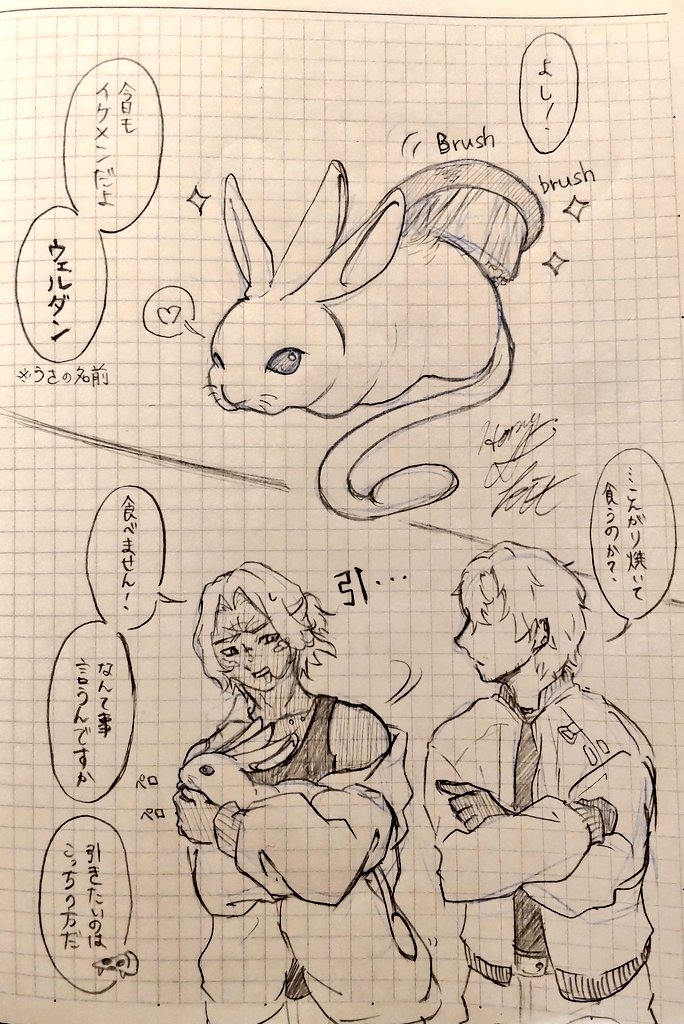 よし!
Brush
brush
今日も
イケメンだよ
ウェルダン
※うさの名前
…こんがり焼いて
食うのか?
引…
食べません!
なんて事
言うんですか
ペロ
ペロ
引きたいのは
こっちの方だ